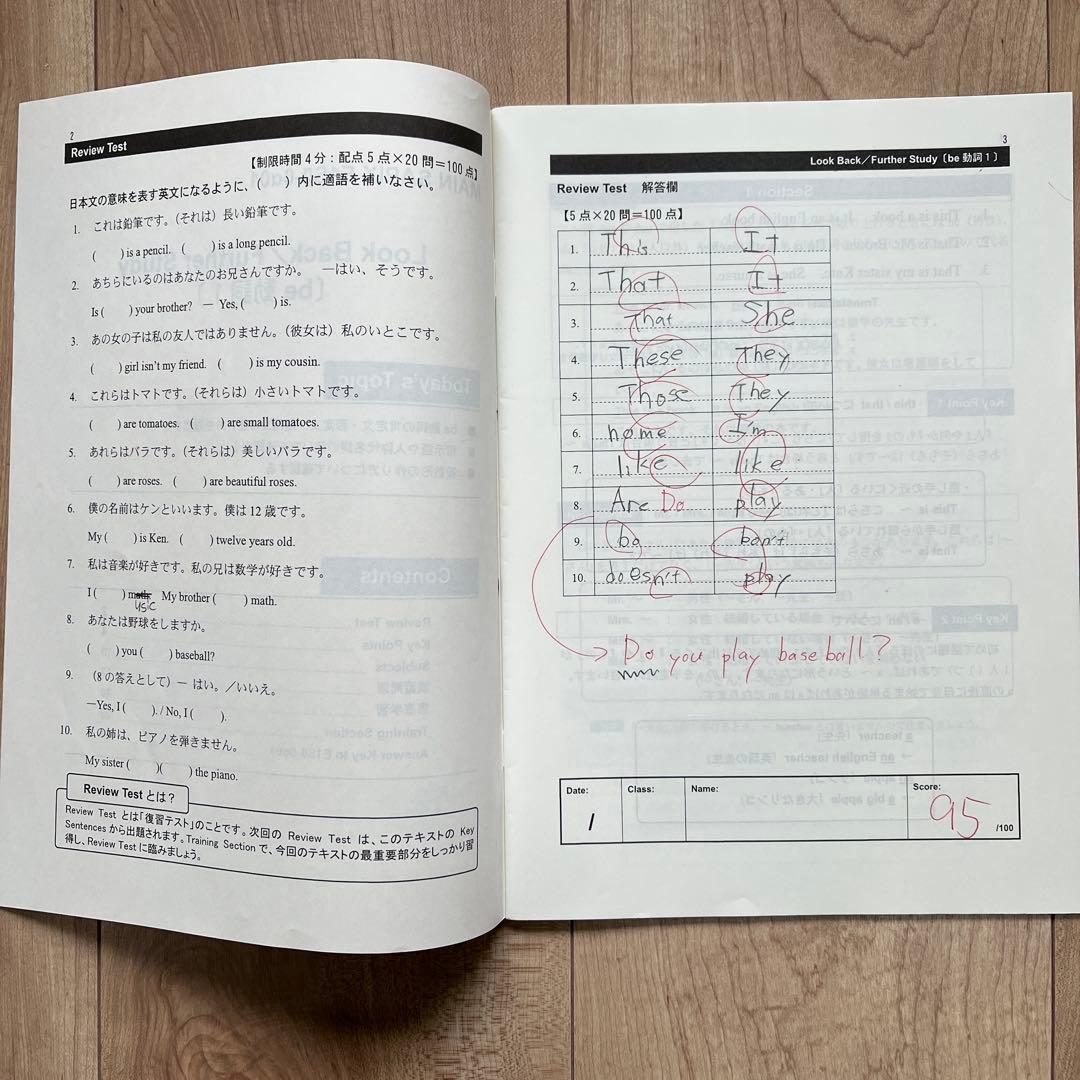 2
Review Test
【制限時間4分：配点5点×20問＝100点】
日本文の意味を表す英文になるように、(　)内に適語を補いなさい。
1. これは鉛筆です。(それは) 長い鉛筆です。
(　) is a pencil. (　) is a long pencil.
2. あちらにいるのはあなたのお兄さんですか。 ―はい、そうです。
Is (　) your brother? ― Yes, (　) is.
3. あの女の子は私の友人ではありません。(彼女は) 私のいとこです。
(　) girl isn't my friend. (　) is my cousin.
4. これらはトマトです。(それらは) 小さいトマトです。
(　) are tomatoes. (　) are small tomatoes.
5. あれらはバラです。(それらは) 美しいバラです。
(　) are roses. (　) are beautiful roses.
6. 僕の名前はケンといいます。僕は12歳です。
My (　) is Ken. (　) twelve years old.
7. 私は音楽が好きです。私の兄は数学が好きです。
I (　) math. My brother (　) math.
usic
8. あなたは野球をしますか。
(　) you (　) baseball?
9. (8の答えとして) ― はい。／いいえ。
―Yes, I (　). / No, I (　).
10. 私の姉は、ピアノを弾きません。
My sister (　)(　) the piano.
Review Test とは？
Review Test とは「復習テスト」のことです。次回の Review Test は、このテキストの Key
Sentences から出題されます。Training Section で、今回のテキストの最重要部分をしっかり習
得し、Review Test に臨みましょう。
3
Look Back／Further Study〔be動詞1〕
Review Test 解答欄
【5点×20問＝100点】
1. This It
2. That It
3. That She
4. These They
5. Those They
6. name I'm
7. like like
8. Are Do play
9. do don't
10. doesn't play
Do you play baseball?
Date: Class: Name: Score:
/ 95 /100